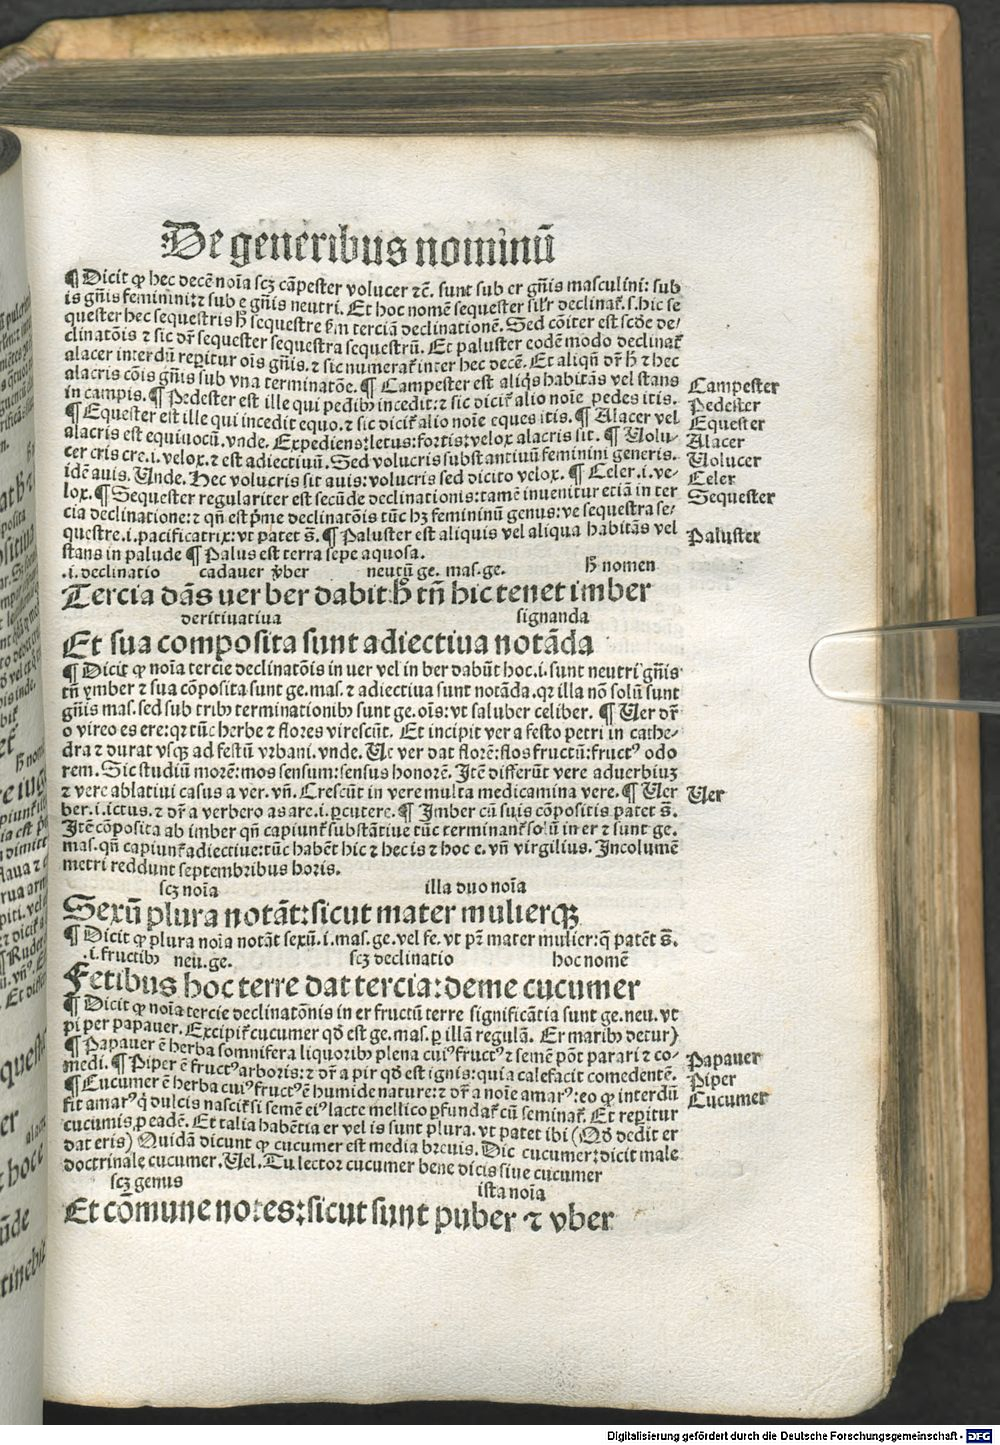 De generibus nominū
¶ Dicit ꝙ hec decē noīa scꝫ cāpester volucer ⁊c̄. sunt sub er gn̄is masculini: sub
is gn̄is feminini:⁊ sub e gn̄is neutri. Et hoc nomē sequester silr̄ declinat̄. s. hic se
quester hec sequestris h̄ sequestre ẜm terciā declinationē. Sed cōiter est scd̄e de/
clinatōis ⁊ sic dr̄ sequester sequestra sequestrū. Et paluster eodē modo declinat̄
alacer interdū reꝑitur oīs gn̄is. ⁊ sic numerat̄ inter hec decē. Et aliqn̄ dr̄ h̄ ⁊ hec
alacris cōis gn̄is sub vna terminatōe. ¶ Campester est aliq̄s habitās vel stans
in campis. ¶ Pedester est ille qui pedibꝫ incedit: ⁊ sic dicit̄ alio noīe pedes itis.
¶ Equester est ille qui incedit equo. ⁊ sic dicit̄ alio noīe eques itis. ¶ Alacer vel
alacris est equiuocū. vnde. Expediens: letus: fortis: velox alacris sit. ¶ Volu-
cer cris cre. i. velox. ⁊ est adiectiuū. Sed volucris substantiuū feminini generis.
idē auis. Vnde. Hec volucris sit auis: volucris sed dicito velox. ¶ Celer. i. ve-
lox. ¶ Sequester regulariter est secūde declinationis: tamē inuenitur etiā in ter
cia declinatione: ⁊ qn̄ est p̄me declinatōis tūc hꝫ femininū genus: vt sequestra se/
questre. i. pacificatrix: vt patet s̄. ¶ Paluster est aliquis vel aliqua habitās vel
stans in palude ¶ Palus est terra sepe aquosa.
Campester
Pedester
Equester
Alacer
Volucer
Celer
Sequester
Paluster
.i. declinatio cadauer v̓ber neutrū ge. mas. ge. h̄ nomen
Tercia dās uer ber dabit h̄ tn̄ hic tenet imber
deriuatiua signanda
Et sua composita sunt adiectiua notāda
¶ Dicit ꝙ noīa tercie declinatōis in uer vel in ber dabūt hoc. i. sunt neutri gn̄is
tn̄ ymber ⁊ sua cōposita sunt ge. mas. ⁊ adiectiua sunt notāda. qꝛ illa nō solū sunt
gn̄is mas. sed sub tribꝫ terminationibꝫ sunt ge. oīs: vt saluber celiber. ¶ Ver dr̄
o vireo es ere: qꝛ tūc herbe ⁊ flores virescūt. Et incipit ver a festo petri in cathe-
dra ⁊ durat vsqꝫ ad festū vrbani. vnde. Ve ver dat florē: flos fructū: fruct⁹ odo
rem. Sic studiū morē: mos sensum: sensus honorē. Itē differūt vere aduerbiuꝫ
⁊ vere ablatiui casus a ver. vn̄. Crescūt in vere multa medicamina vere. ¶ Ver
ber. i. ictus. ⁊ dr̄ a verbero as are. i. ꝑcutere. ¶ Imber cū suis cōpositis patet s̄.
Itē cōposita ab imber qn̄ capiunt̄ substātiue tūc terminant̄ solū in er ⁊ sunt ge.
mas. qn̄ capiunt̄ adiectiue: tūc habēt hic ⁊ hec is ⁊ hoc e. vn̄ virgilius. Incolumē
metri reddunt septembribus horis.
Ver
scꝫ noīa illa duo noīa
Sexū plura notāt: sicut mater mulierqꝫ
¶ Dicit ꝙ plura noīa notāt sexū. i. mas. ge. vel fe. vt pꝫ mater mulier: q̄ patēt s̄.
.i. fructibꝫ neu. ge. scꝫ declinatio hoc nomē
Fetibus hoc terre dat tercia: deme cucumer
¶ Dicit ꝙ noīa tercie declinatōnis in er fructū terre significātia sunt ge. neu. vt
piper papauer. Excipit̄ cucumer qd̄ est ge. mas. ꝑ illā regulā. Er maribꝫ detur)
¶ Papauer ē herba somnifera liquoribꝫ plena cui⁹ fruct⁹ ⁊ semē pōt parari ⁊ co-
medi. ¶ Piper ē fruct⁹ arboris: ⁊ dr̄ a pir qd̄ est ignis: quia calefacit comedentē.
¶ Cucumer ē herba cui⁹ fruct⁹ ē humide nature: ⁊ dr̄ a noīe amar⁹: eo ꝙ interdū
fit amar⁹ q̇ dulcis nascit̄ si semē ei⁹ lacte mellico ꝑfundat̄ cū seminat̄. Et reꝑitur
cucumis, ꝓ eadē. Et talia habētia er vel is sunt plura. vt patet ibi (Qd̄ dedit er
dat eris) Quidā dicunt ꝙ cucumer est media breuis. Dic cucumer: dicit male
doctrinale cucumer. Vel. Tu lector cucumer bene dicis siue cucumer
Papauer
Piper
Cucumer
scꝫ genus ista noīa
Et cōmune notes: sicut sunt puber ⁊ vber
Digitalisierung gefördert durch die Deutsche Forschungsgemeinschaft - DFG